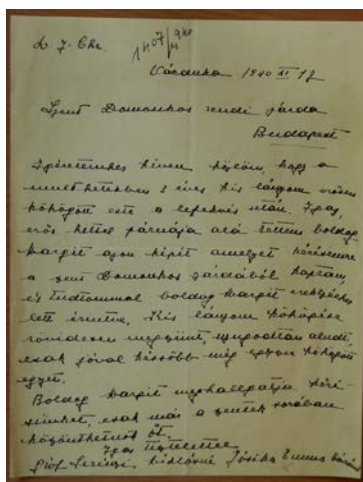 1407/940
1940 XI 17
Szent Domonkos rendi zárda
Budapest
híven közlöm, hogy a
mult hetekben 8 éves kis lányom erősen
köhögött este a lefekvés után. Igaz,
párnája alá tettem boldog
Margit azon képét amelyet kérésemre
a szent Domonkos zárdából kaptam,
és tudtommal boldog Margit
lett érintve. Kis lányom köhögése
rövidesen megszünt, nyugodtan aludt,
csak jóval később még egyszer köhögött
egyet.
Boldog Margit meghallgatja kéré
sünket, csak már a szentek sorában
köszönthetnők őt.
Igaz tisztelettel
Gróf Miklósné Jósika Emma